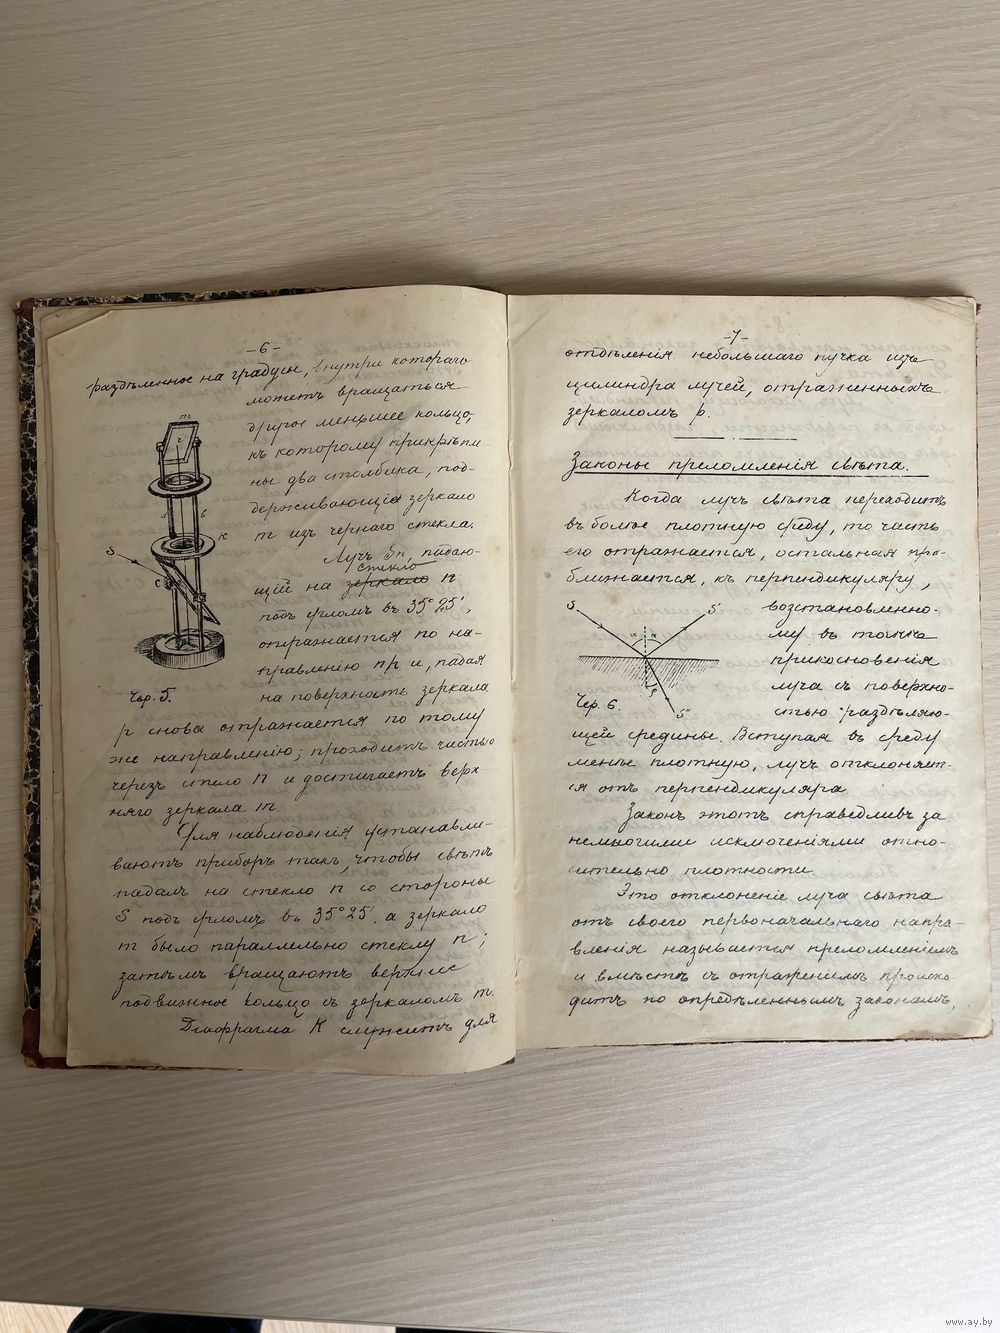 -6-
раздѣленное на градусы, внутри котораго
можетъ вращаться
другое меньшее кольцо,
къ которому прикрѣпле-
ны два столбика, под-
держивающіе зеркало
m изъ чернаго стекла.
Лучъ Sn, падаю-
стекло
щій на зеркало n
подъ угломъ въ 35°25',
отражается по на-
правленію np и, падая
на поверхность зеркала
p снова отражается по тому
же направленію; проходитъ частью
черезъ стекло n и достигаетъ верх
няго зеркала m.
Для наблюденія устанавли-
ваютъ приборъ такъ, чтобы свѣтъ
падалъ на стекло n со стороны
S подъ угломъ въ 35°25', а зеркало
m было параллельно стеклу n;
затѣмъ вращаютъ верхнее
подвижное кольцо съ зеркаломъ m.
Діафрагма К служитъ для
m
r
в
К
S
C
Чер. 5.
-7-
отдѣленія небольшаго пучка изъ
цилиндра лучей, отраженныхъ
зеркаломъ p.
Законы преломленія свѣта.
Когда лучъ свѣта переходитъ
въ болѣе плотную среду, то часть
его отражается, остальная при-
ближается, къ перпендикуляру,
возстановленно-
му въ точкѣ
прикосновенія
луча съ поверхно-
стью раздѣляю-
щей средины. Вступая въ среду
менѣе плотную, лучъ отклоняет-
ся отъ перпендикуляра
Законъ этотъ справедливъ за
немногими исключеніями отно-
сительно плотности.
Это отклоненіе луча свѣта
отъ своего первоначальнаго напра-
вленія называется преломленіемъ
и вмѣстѣ съ отраженіемъ происхо-
дитъ по опредѣленнымъ законамъ,
S
S'
α
α
β
S"
Чер. 6.
www.ay.by